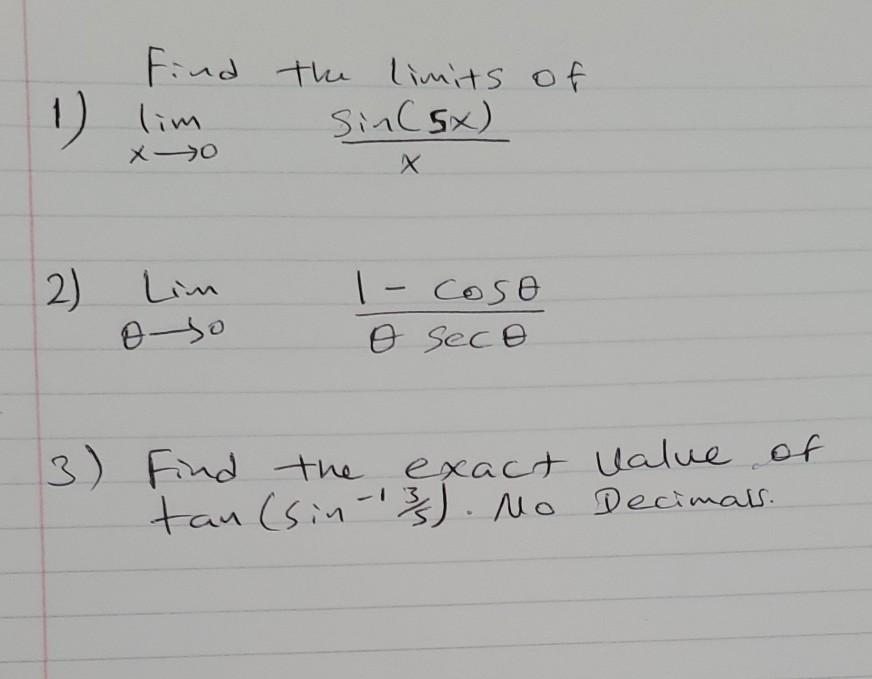 Find the limits of
1) lim x→0 sin(5x)/x
2) Lim θ→0 1 - cosθ/θ secθ
3) Find the exact Value of
tan(sin⁻¹ 3/5). No Decimals.